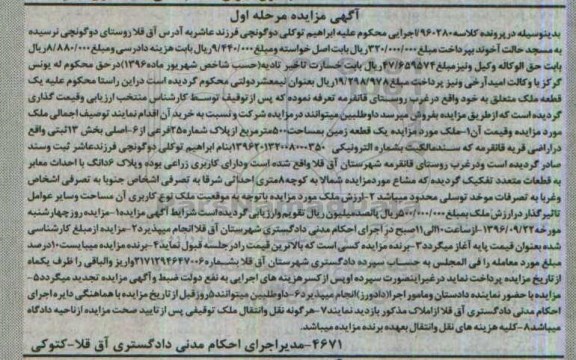 آگهی مزایده مرحله اول
بدینوسیله درپرونده کلاسه ۹۶۰۲۸۰ اجرایی محکوم علیه ابراهیم توکلی دوگونچی فرزند عاشربه آدرس آق قلا روستای دوگونچی نرسیده
به مسجد حالت آخوند بپرداخت مبلغ ۳۲۰/۰۰۰/۰۰۰ریال بابت اصل خواسته ومبلغ ۹/۴۴۰/۰۰۰ریال بابت هزینه دادرسی ومبلغ ۸/۸۸۰/۰۰۰ریال
بابت حق الوکاله وکیل ونیز مبلغ ۴۷/۶۵۹۵۷۴ریال بابت خسارت تاخیر تادیه(حسب شاخص شهریور ماده۱۳۹۶)درحق محکوم له یونس
گرکز با وکالت امیدآرخی ونیز پرداخت مبلغ ۱۹/۲۹۸/۹۷۸ریال بعنوان نیمعشردولتی محکوم گردیده است دراین راستا محکوم علیه یک
قطعه ملک متعلق به خود واقع درغرب روستای قانقرمه تعرفه نموده که پس ازتوقیف توسط کارشناس منتخب ارزیابی وقیمت گذاری
گردیده است که ازطریق مزایده بفروش میرسد داوطلبین میتوانند درمزایده شرکت و نسبت به خرید آن اقدام نمایند توصیف اجمالی ملک
مورد مزایده وقیمت آن۱-ملک مورد مزایده یک قطعه زمین بمساحت۵۰۰مترمربع ازپلاک شماره۲۵فرعی از۶-اصلی بخش ۱۳ثبتی واقع
دراراضی قریه قانقرمه که سندمالکیت بشماره الکترونیکی بنام ابراهیم توکلی دوگونچی فرزندعاشر ثبت وسند
صادر گردیده است ودرغرب روستای قانقرمه شهرستان آق قلا واقع شده است ودارای کاربری زراعی بوده وپلاک ۶دانگ با احداث معابر
به قطعات متعدد تفکیک گردیده که مشاع موردمزایده شمالا به کوچه۸متری احداثی شرقا به تصرفی اشخاص جنوبا به تصرفی اشخاص
وغربا به تصرفات موحد توسلی محدود میباشد ۲-ارزش ملک مورد مزایده باتوجه به موقعیت ملک نوع کاربری آن مساحت وسایر عوامل
تاثیرگذار درارزش ملک بمبلغ ۵۰۰/۰۰۰/۰۰۰ریال پانصدمیلیون ریال تقویم وارزیابی گردیده است شرایط آگهی مزایده۱-مزایده روز چهارشنبه
مورخه ۱۳۹۶/۰۹/۲۲ ازساعت۱۰الی۱۱صبح در اجرای احکام مدنی دادگستری شهرستان آق قلاانجام میپذیرد۲-مزایده از مبلغ کارشناسی
شده بعنوان قیمت پایه آغاز میگردد۳-برنده مزایده کسی است که بالاترین قیمت رادرجلسه قبول نماید۴-برنده مزایده میبایست۱۰درصد
مبلغ مورد معامله را فی المجلس به حساب سپرده دادگستری شهرستان آق قلا بشماره واریز والباقی را ظرف یکماه
از تاریخ مزایده پرداخت نماید در غیراینصورت سپرده اوپس از کسر هزینه های اجرایی به نفع دولت ضبط و آگهی مزایده تجدید میگردد۵-
مزایده با حضور نماینده دادستان ومامور اجرا(دادورز)انجام میپذیرد۶-داوطلبین میتوانند۵روزقبل از تاریخ مزایده با هماهنگی دایره اجرای
احکام مدنی دادگستری آق قلا ازاملاک مذکور بازدید نمایند۷-هرگونه نقل وانتقال ملک توقیفی پس از تایید صحت مزایده ازناحیه دادگاه
میباشد۸-کلیه هزینه های نقل وانتقال بعهده برنده مزایده میباشد.
۴۶۷۱-مدیراجرای احکام مدنی دادگستری آق قلا-کتوکی